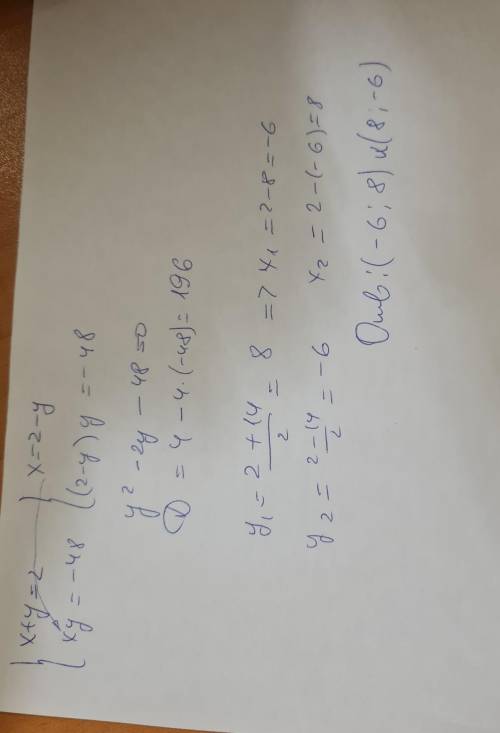 { x+y=2 { x=2-y
{ xy=-48 { (2-y)y=-48
y² - 2y - 48=0
D = 4 - 4·(-48)=196
y₁ = (2+14)/2 = 8 => x₁ = 2-8 = -6
y₂ = (2-14)/2 = -6 x₂ = 2-(-6)=8
Отв:(-6; 8) и (8; -6)